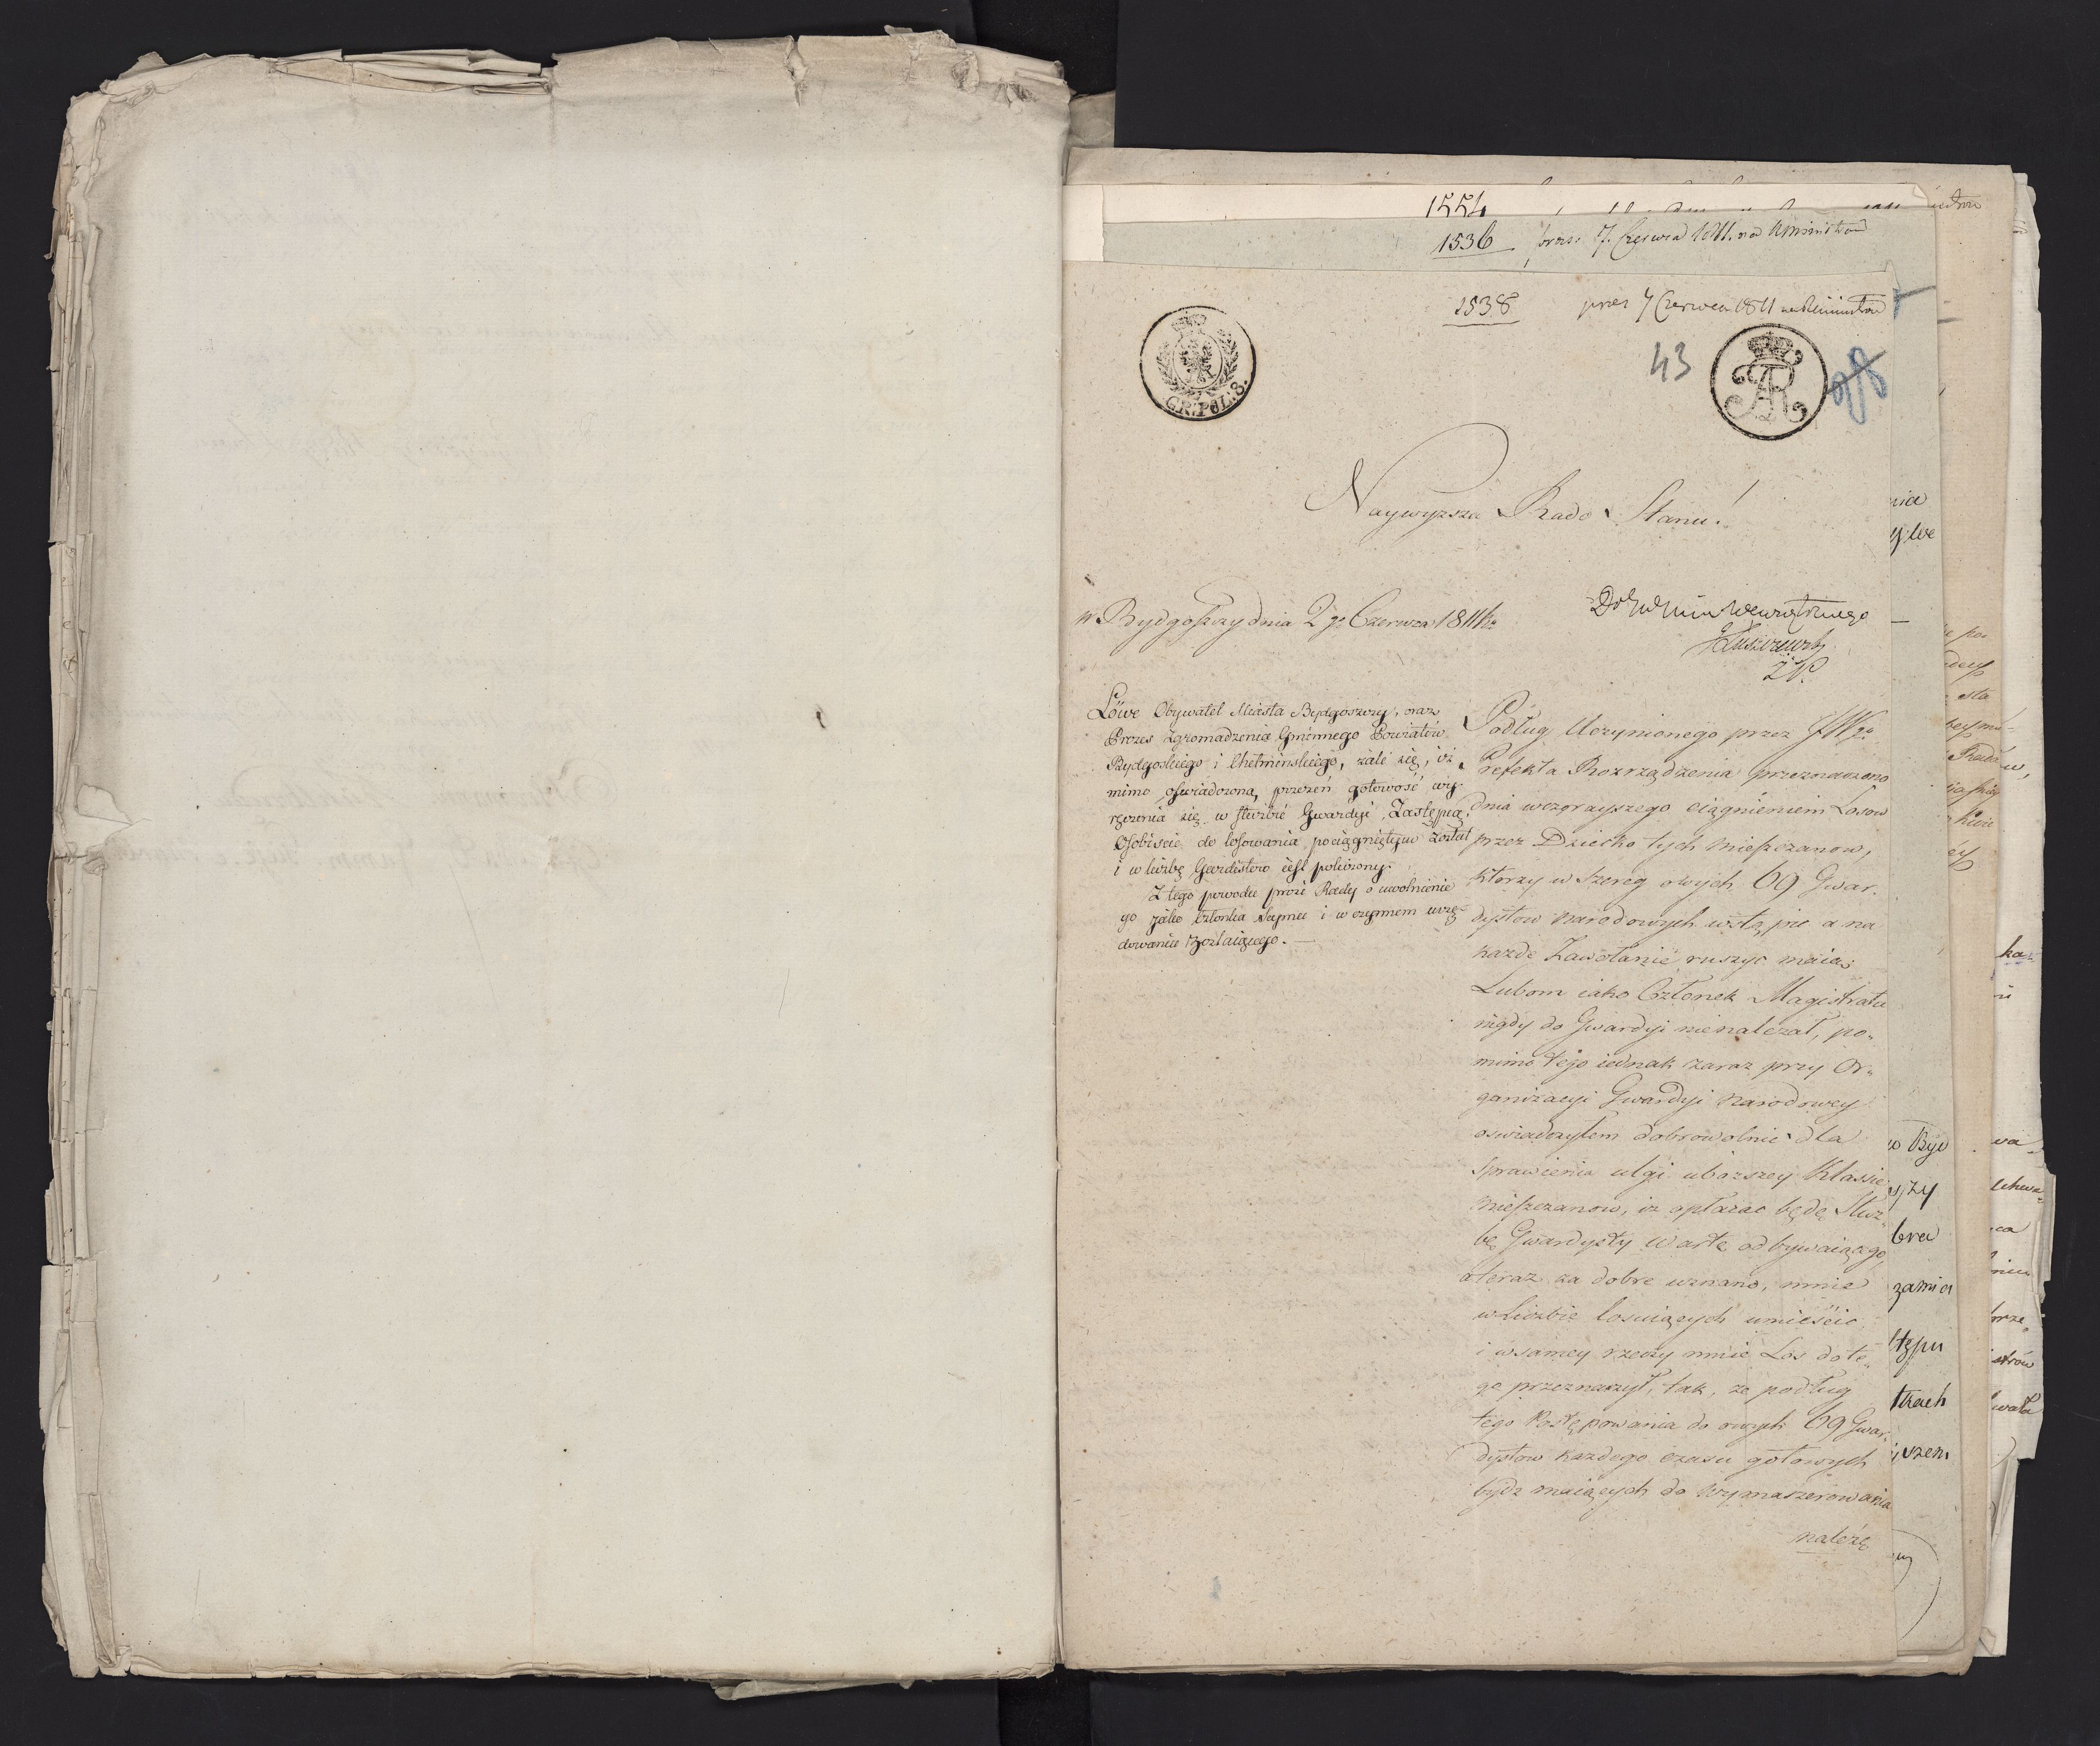 1554
1536 prez. 7. Czerwca 1811. na Ministrow
1538 prez 7 Czerwca 1811 na Ministrow
43
GR: POL: 3.
AR
Naywyzsza Rado Stanu!
w Bydgoszczy dnia 2go Czerwca 1811 Ro
Łuszczewski
Löwe Obywatel Miasta Bydgoszczy, oraz
Prezes Zgromadzenia Gminnego Powiatów
Bydgoskiego i Chełmińskiego, żali się, iż
mimo oświadczoną przezeń gotowość wy-
ręczenia się w służbie Gwardyi, Zastępcą,
Osobiście do losowania pociągniętym został
i w liczbę Gwardistów iest policzony.
Z tego powodu prosi Rady o uwolnienie
go jako Członka Seymu i w czynnem urzę-
dowaniu zostaiącego.
Podług Uczynionego przez JWgo
Prefekta Rozrządzenia przeznaczono
dnia wczorayszego ciągnieniem Losow
przez Dziecko tych mieszczanow,
ktorzy w Szereg owych 69 Gwar-
dystow narodowych wstąpic a na
kazde Zawołanie ruszyc maią.
Lubom iako Członek Magistratu
nigdy do Gwardyi nienalezał, po-
mimo tego iednak zaraz przy Or-
ganizacyi Gwardyi narodowey
oswiadczyłem dobrowolnie dla
sprawienia ulgi ubozszey Klassie
mieszczanow, iz opłazac będę Słuz-
bę Gwardysty Wartę odbywaiącego,
a teraz za dobre uznano, mnie
w Liczbie losuiących umieścic
i w samey rzeczy mnie Los do te-
go przeznaczył, tak, ze podług
tego Postępowania do owych 69 Gwar-
dystow kazdego czasu gotowych
bydz maiących do Wymaszerowania
należę